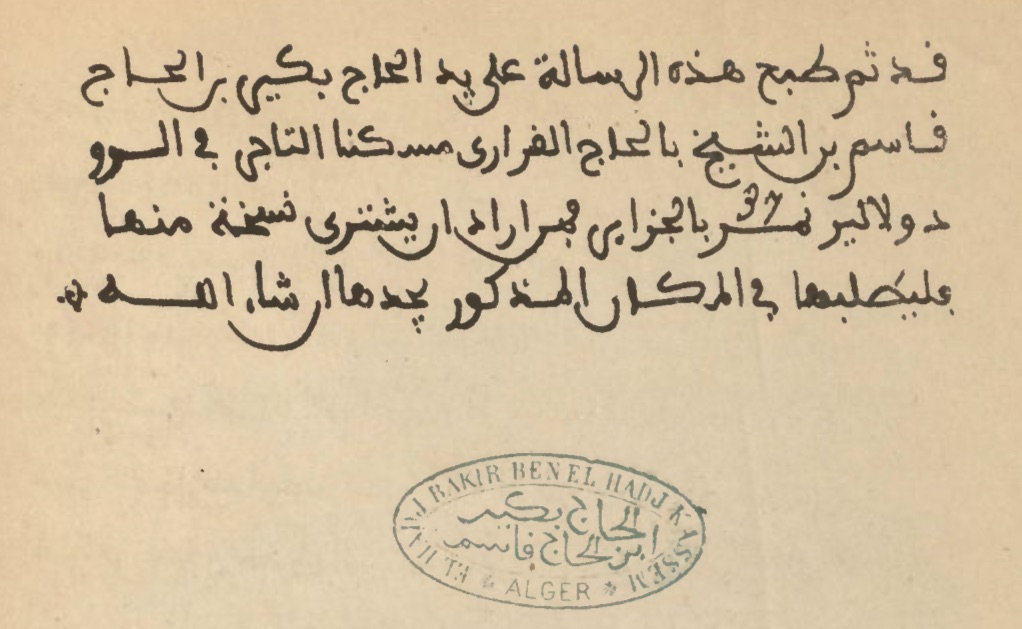 قد تم طبع هذه الرسالة على يد الحاج بكير بن الحاج
قاسم بن الشيخ بالحاج القراري مسكنا التاجر في الرو
دولالير نمر 37 بالجزاير فمن اراد ان يشتري نسخة منها
فليطلبها في المكان المذكور يجدها ان شاء الله
EL HADJ BAKIR BEN EL HADJ KASSEM
الحاج بكير
ابن الحاج قاسم
* ALGER *